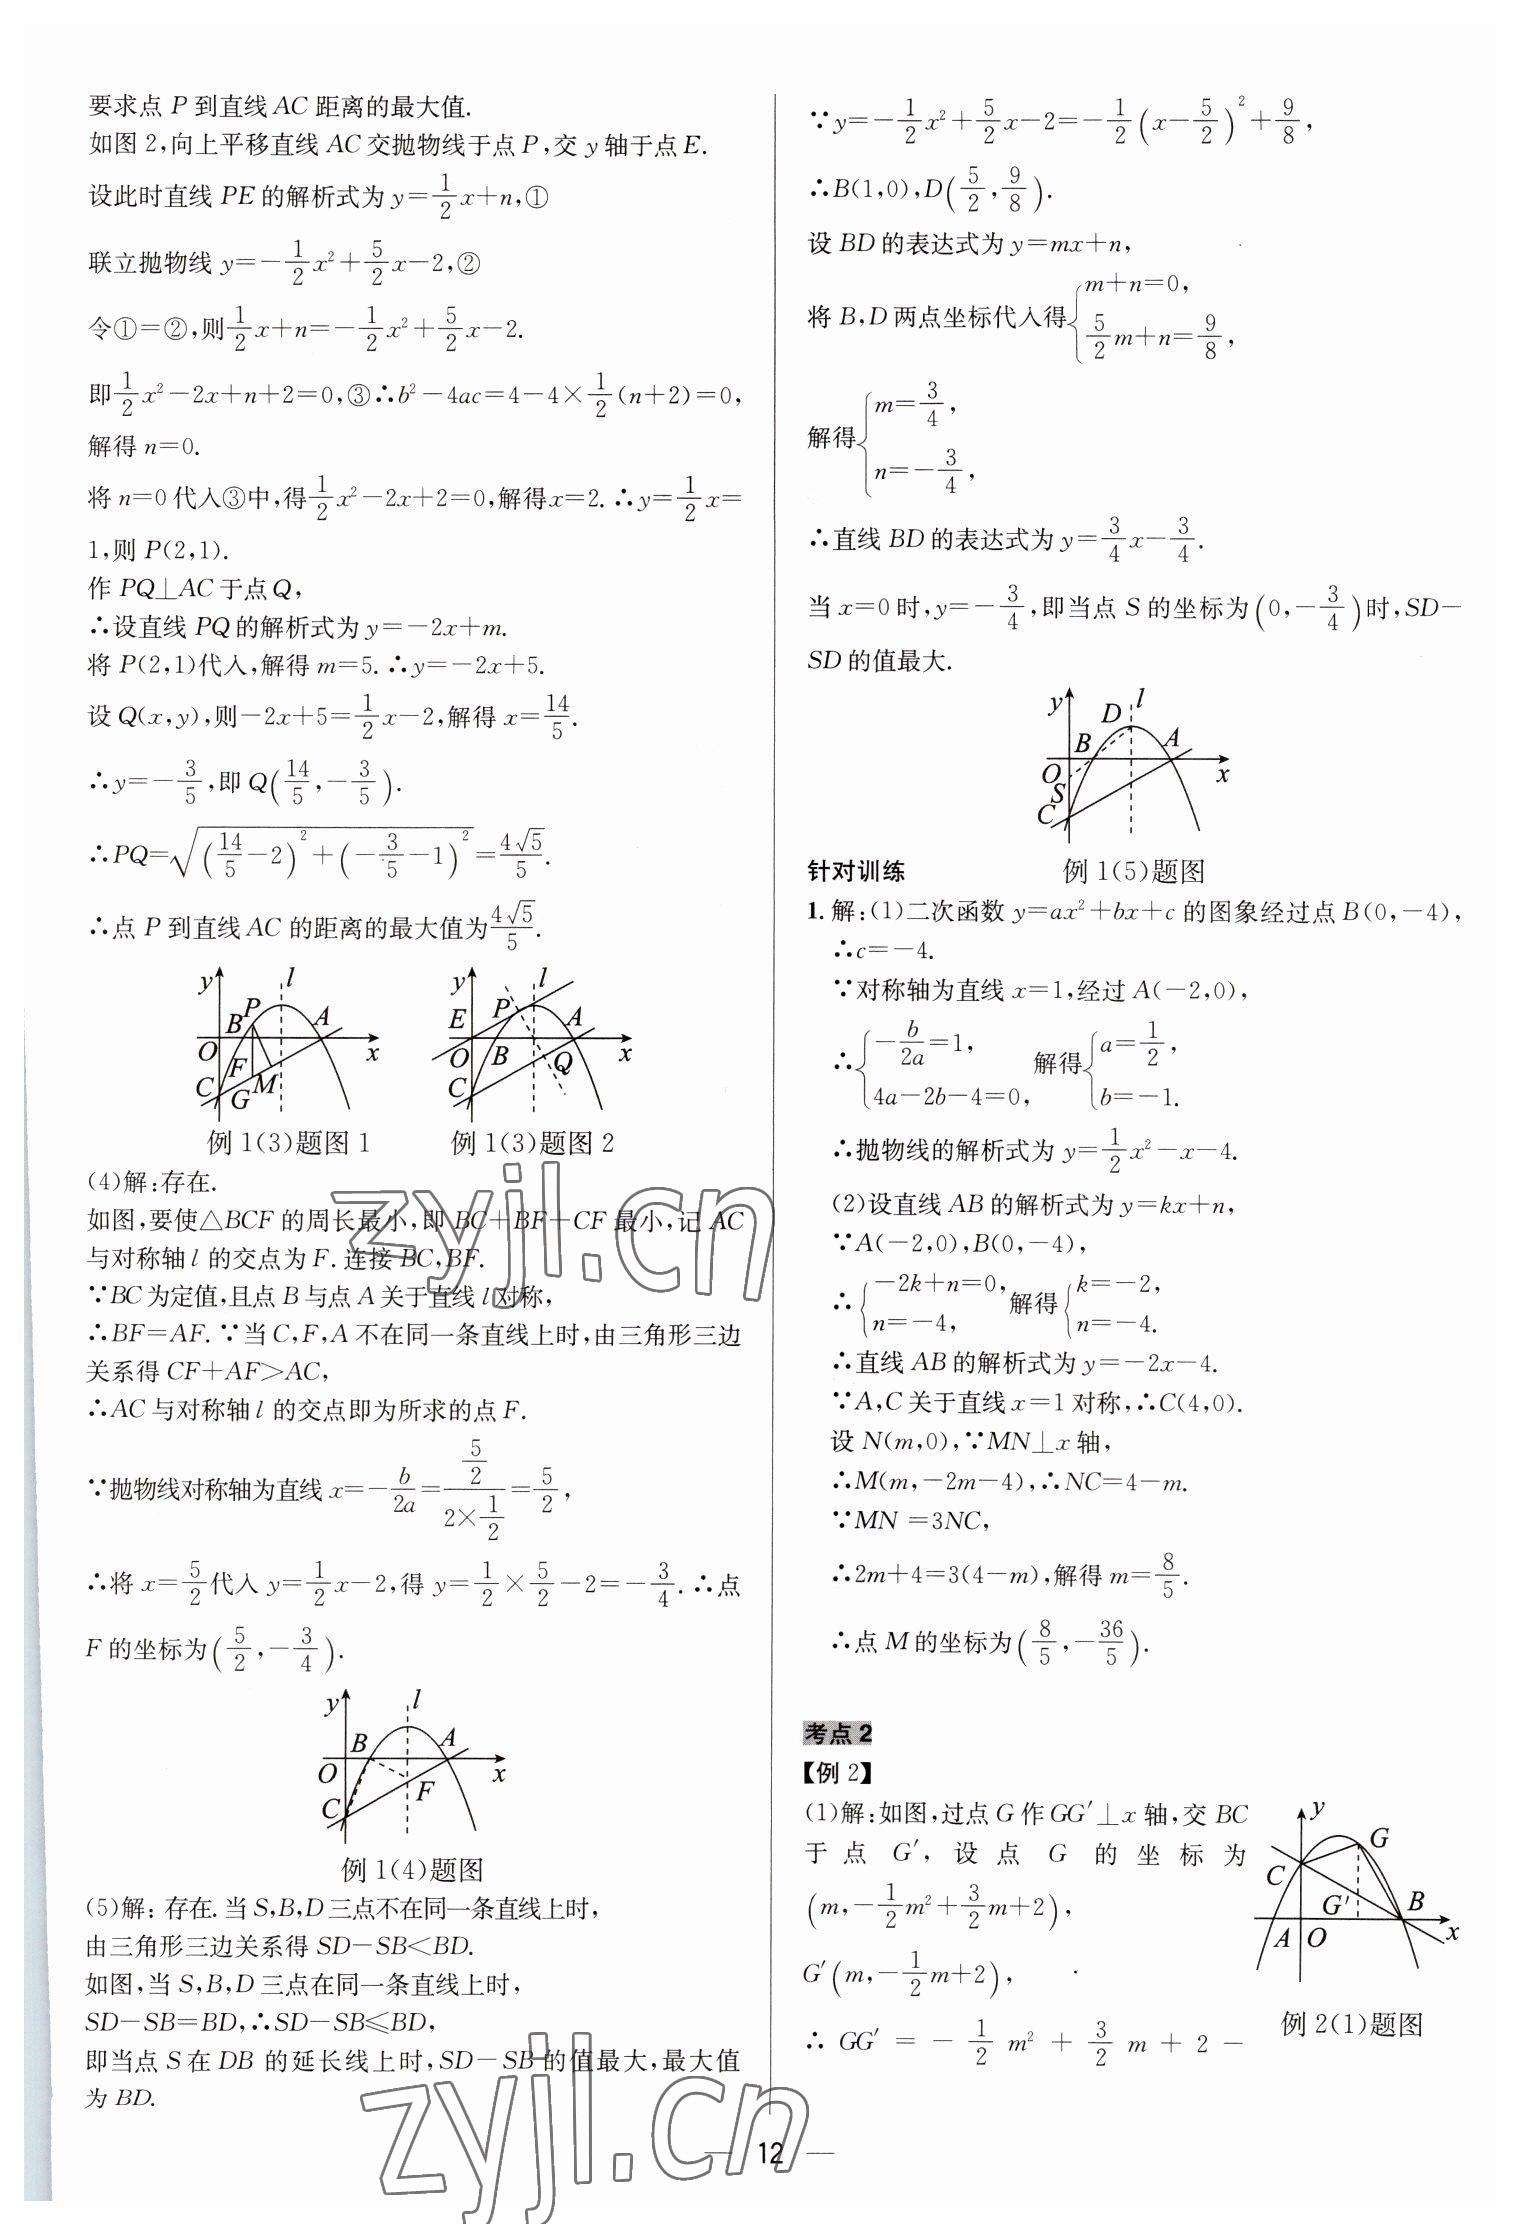 要求点 P 到直线 AC 距离的最大值.
如图 2,向上平移直线 AC 交抛物线于点 P,交 y 轴于点 E.
设此时直线 PE 的解析式为 y=1/2x+n,①
联立抛物线 y=-1/2x²+5/2x-2,②
令①=②,则1/2x+n=-1/2x²+5/2x-2.
即1/2x²-2x+n+2=0,③∴b²-4ac=4-4×1/2(n+2)=0,
解得 n=0.
将 n=0 代入③中,得1/2x²-2x+2=0,解得x=2.∴y=1/2x=
1,则 P(2,1).
作 PQ⊥AC 于点 Q,
∴设直线 PQ 的解析式为 y=-2x+m.
将 P(2,1)代入,解得 m=5.∴y=-2x+5.
设 Q(x,y),则-2x+5=1/2x-2,解得 x=14/5.
∴y=-3/5,即 Q(14/5,-3/5).
∴PQ=√((14/5-2)²+(-3/5-1)²)=4√5/5.
∴点 P 到直线 AC 的距离的最大值为4√5/5.
y l P B A O x F M C G
y l E P A O B Q x C
例 1(3)题图 1
例 1(3)题图 2
(4)解:存在.
如图,要使△BCF 的周长最小,即 BC+BF+CF 最小,记 AC
与对称轴 l 的交点为 F.连接 BC,BF.
∵BC 为定值,且点 B 与点 A 关于直线 l 对称,
∴BF=AF.∵当 C,F,A 不在同一条直线上时,由三角形三边
关系得 CF+AF>AC,
∴AC 与对称轴 l 的交点即为所求的点 F.
∵抛物线对称轴为直线 x=-b/2a=(5/2)/(2×1/2)=5/2,
∴将 x=5/2代入 y=1/2x-2,得 y=1/2×5/2-2=-3/4.∴点
F 的坐标为(5/2,-3/4).
y l B A O x F C
例 1(4)题图
(5)解:存在.当 S,B,D 三点不在同一条直线上时,
由三角形三边关系得 SD-SB<BD.
如图,当 S,B,D 三点在同一条直线上时,
SD-SB=BD,∴SD-SB≤BD,
即当点 S 在 DB 的延长线上时,SD-SB 的值最大,最大值
为 BD.
∵y=-1/2x²+5/2x-2=-1/2(x-5/2)²+9/8,
∴B(1,0),D(5/2,9/8).
设 BD 的表达式为 y=mx+n,
将 B,D 两点坐标代入得{m+n=0,
5/2m+n=9/8,
解得{m=3/4,
n=-3/4,
∴直线 BD 的表达式为 y=3/4x-3/4.
当 x=0 时,y=-3/4,即当点 S 的坐标为(0,-3/4)时,SD-
SD 的值最大.
y D l B A O x S C
针对训练
例 1(5)题图
1.解:(1)二次函数 y=ax²+bx+c 的图象经过点 B(0,-4),
∴c=-4.
∵对称轴为直线 x=1,经过 A(-2,0),
∴{-b/2a=1, 解得{a=1/2,
4a-2b-4=0, b=-1.
∴抛物线的解析式为 y=1/2x²-x-4.
(2)设直线 AB 的解析式为 y=kx+n,
∵A(-2,0),B(0,-4),
∴{-2k+n=0, 解得{k=-2,
n=-4, n=-4.
∴直线 AB 的解析式为 y=-2x-4.
∵A,C 关于直线 x=1 对称,∴C(4,0).
设 N(m,0),∵MN⊥x 轴,
∴M(m,-2m-4),∴NC=4-m.
∵MN =3NC,
∴2m+4=3(4-m),解得 m=8/5.
∴点 M 的坐标为(8/5,-36/5).
考点 2
【例 2】
(1)解:如图,过点 G 作 GG′⊥x 轴,交 BC
于点 G′,设点 G 的坐标为
(m,-1/2m²+3/2m+2),
G′(m,-1/2m+2),
∴ GG′ = - 1/2 m² + 3/2 m + 2 -
y G C G′ B A O x
例 2(1)题图
12
zyjl.cn
zyjl.cn